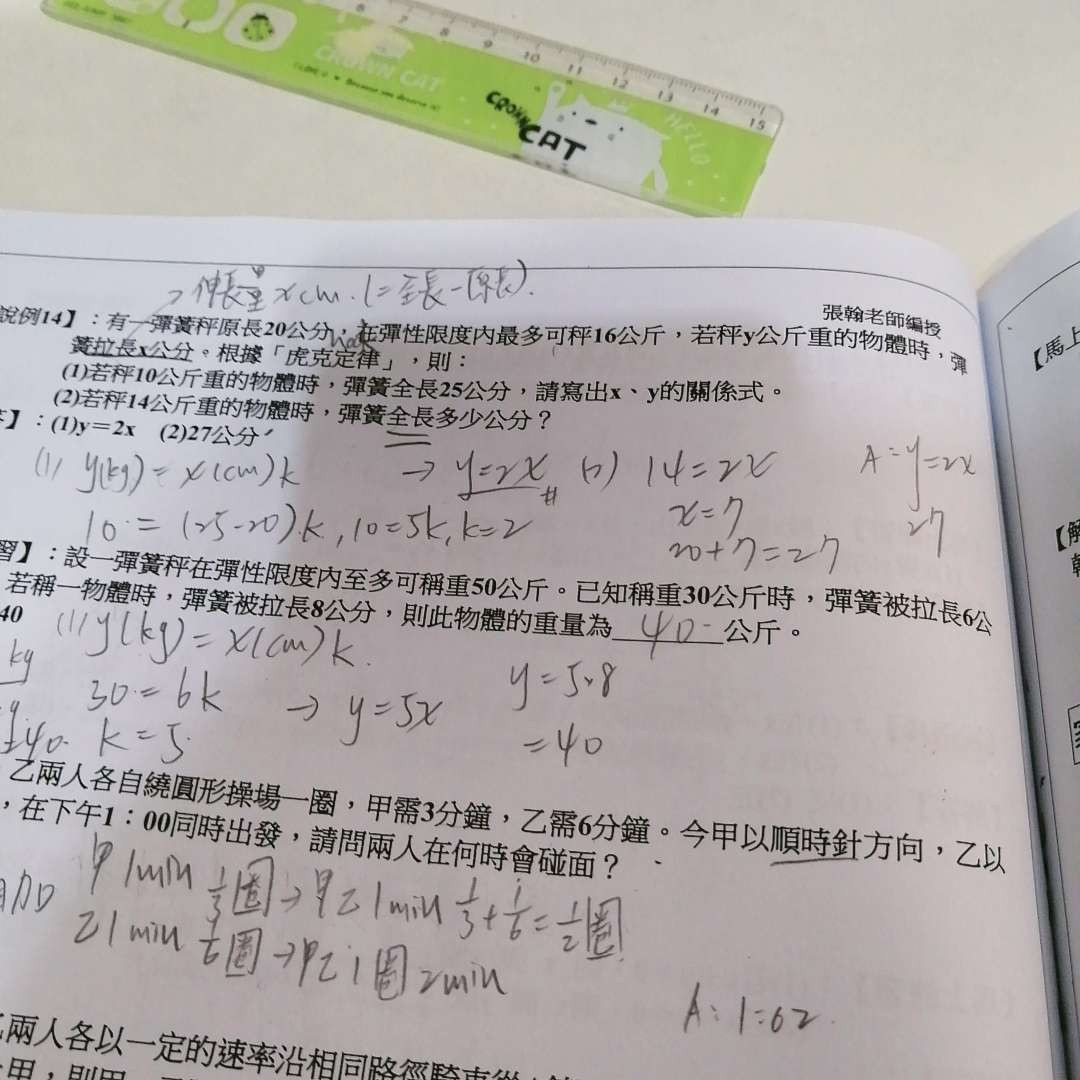 6 7 8 9 10 11 12 13 14 15
CROWN CAT
CROWN
CAT
HELLO
伸長量 x cm. (=全長-原長).
張翰老師編授
說例14】：有一彈簧秤原長20公分，在彈性限度內最多可秤16公斤，若秤y公斤重的物體時，彈
簧拉長x公分。根據「虎克定律」，則：
(1)若秤10公斤重的物體時，彈簧全長25公分，請寫出x、y的關係式。
(2)若秤14公斤重的物體時，彈簧全長多少公分？
】：(1)y＝2x (2)27公分
(1) y(kg) = x(cm)k → y=2x # (2) 14=2x A: y=2x
10 = (25-20).k, 10=5k, k=2 x=7 27
20+7=27
習】：設一彈簧秤在彈性限度內至多可稱重50公斤。已知稱重30公斤時，彈簧被拉長6公
若稱一物體時，彈簧被拉長8公分，則此物體的重量為 40 公斤。
40
(1) y(kg) = x(cm)k.
kg
30 = 6k → y=5x y=5×8
k=5 =40
乙兩人各自繞圓形操場一圈，甲需3分鐘，乙需6分鐘。今甲以順時針方向，乙以
，在下午1：00同時出發，請問兩人在何時會碰面？
甲 1min 1/3圈 → 甲乙 1min 1/3+1/6=1/2圈
乙 1min 1/6圈 → 甲乙 1圈 2min
A: 1:02
兩人各以一定的速率沿相同路徑騎車從
【馬上